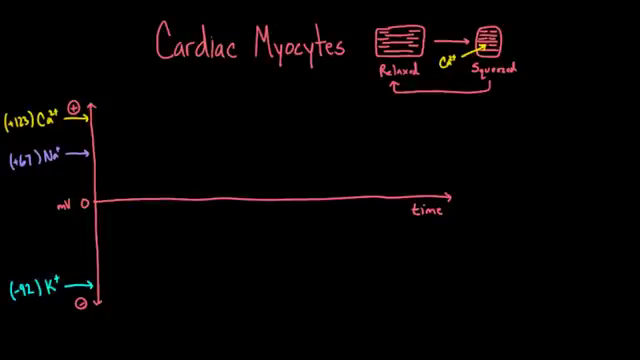 Cardiac Myocytes
Ca²⁺
Relaxed
Squeezed
(+123) Ca²⁺
+
(+67) Na⁺
mV 0
time
(-92) K⁺
-